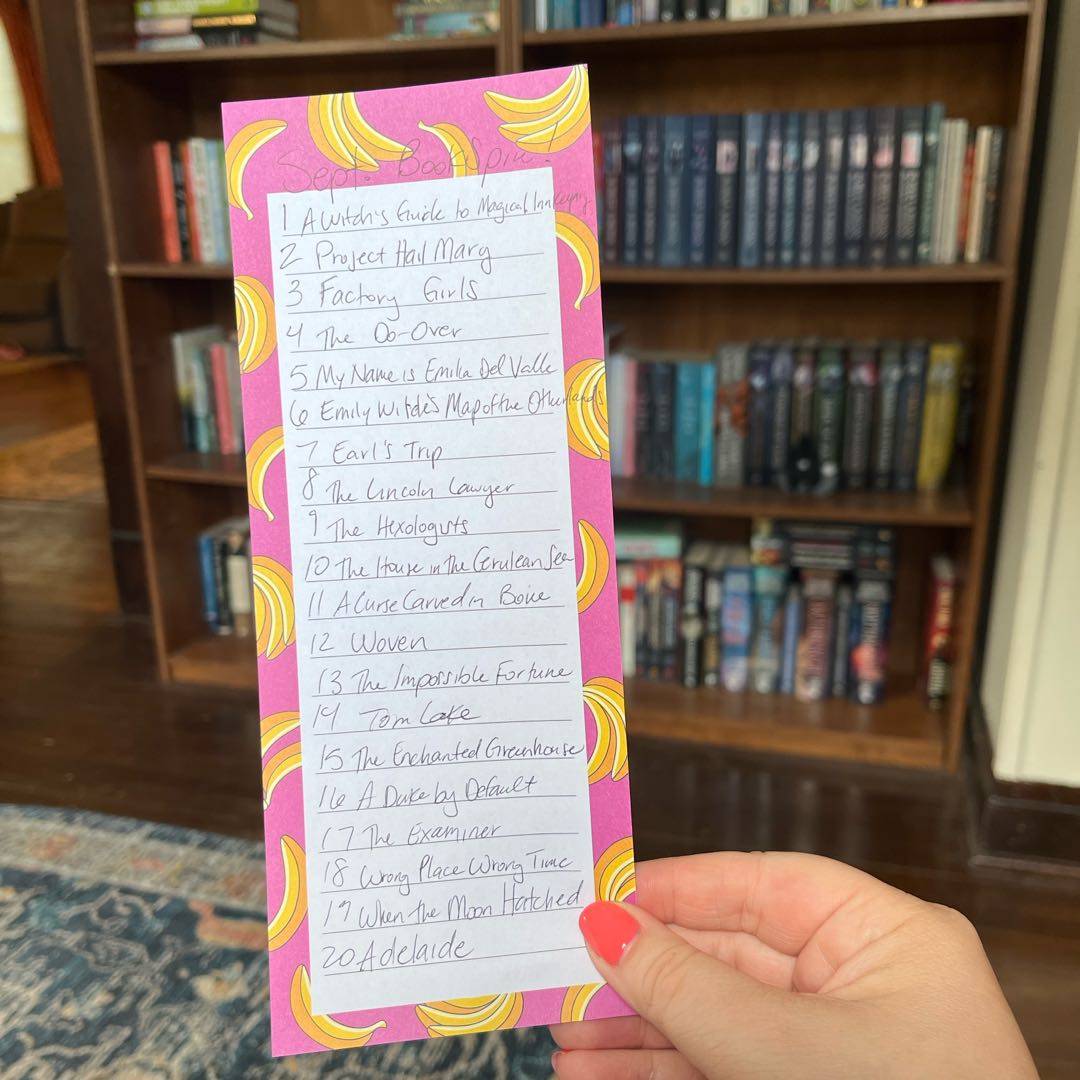 Sept. BookSpin!
1 A Witch's Guide to Magical Innkeeping
2 Project Hail Mary
3 Factory Girls
4 The Do-Over
5 My Name is Emilia Del Valle
6 Emily Wilde's Map of the Otherlands
7 Earl's Trip
8 The Lincoln Lawyer
9 The Hexologists
10 The House in the Cerulean Sea
11 A Curse Carved in Bone
12 Woven
13 The Impossible Fortune
14 Tom Lake
15 The Enchanted Greenhouse
16 A Duke by Default
17 The Examiner
18 Wrong Place Wrong Time
19 When the Moon Hatched
20 Adelaide